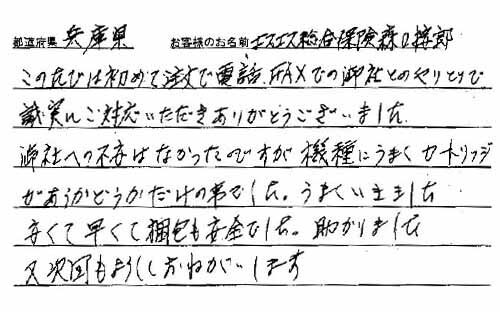 都道府県 兵庫県 お客様のお名前 エスエス総合保険 森口 郎
このたびは初めて注文で電話、FAXでの御社とのやりとりで
誠実にご対応いただきありがとうございました。
御社への不安はなかったのですが機種にうまくカートリッジ
があうかどうかだけの事でした。うまくいきました
安くて早くて梱包も安全でした。助かりました
又次回もよろしくおねがいします